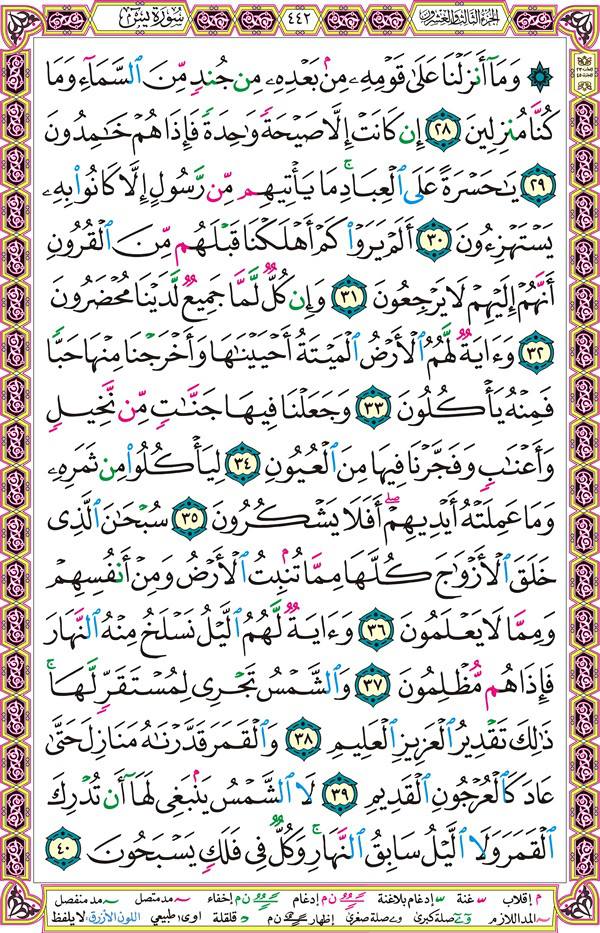 الجزء الثالث والعشرون
٤٤٢
سورة يس
۞ وَمَآ أَنزَلْنَا عَلَىٰ قَوْمِهِۦ مِنۢ بَعْدِهِۦ مِن جُندٍ مِّنَ ٱلسَّمَآءِ وَمَا
كُنَّا مُنزِلِينَ ٢٨ إِن كَانَتْ إِلَّا صَيْحَةً وَٰحِدَةً فَإِذَا هُمْ خَٰمِدُونَ
٢٩ يَٰحَسْرَةً عَلَى ٱلْعِبَادِ ۚ مَا يَأْتِيهِم مِّن رَّسُولٍ إِلَّا كَانُوا۟ بِهِۦ
يَسْتَهْزِءُونَ ٣٠ أَلَمْ يَرَوْا۟ كَمْ أَهْلَكْنَا قَبْلَهُم مِّنَ ٱلْقُرُونِ
أَنَّهُمْ إِلَيْهِمْ لَا يَرْجِعُونَ ٣١ وَإِن كُلٌّ لَّمَّا جَمِيعٌ لَّدَيْنَا مُحْضَرُونَ
٣٢ وَءَايَةٌ لَّهُمُ ٱلْأَرْضُ ٱلْمَيْتَةُ أَحْيَيْنَٰهَا وَأَخْرَجْنَا مِنْهَا حَبًّا
فَمِنْهُ يَأْكُلُونَ ٣٣ وَجَعَلْنَا فِيهَا جَنَّٰتٍ مِّن نَّخِيلٍ
وَأَعْنَٰبٍ وَفَجَّرْنَا فِيهَا مِنَ ٱلْعُيُونِ ٣٤ لِيَأْكُلُوا۟ مِن ثَمَرِهِۦ
وَمَا عَمِلَتْهُ أَيْدِيهِمْ ۖ أَفَلَا يَشْكُرُونَ ٣٥ سُبْحَٰنَ ٱلَّذِى
خَلَقَ ٱلْأَزْوَٰجَ كُلَّهَا مِمَّا تُنۢبِتُ ٱلْأَرْضُ وَمِنْ أَنفُسِهِمْ
وَمِمَّا لَا يَعْلَمُونَ ٣٦ وَءَايَةٌ لَّهُمُ ٱلَّيْلُ نَسْلَخُ مِنْهُ ٱلنَّهَارَ
فَإِذَا هُم مُّظْلِمُونَ ٣٧ وَٱلشَّمْسُ تَجْرِى لِمُسْتَقَرٍّ لَّهَا ۚ
ذَٰلِكَ تَقْدِيرُ ٱلْعَزِيزِ ٱلْعَلِيمِ ٣٨ وَٱلْقَمَرَ قَدَّرْنَٰهُ مَنَازِلَ حَتَّىٰ
عَادَ كَٱلْعُرْجُونِ ٱلْقَدِيمِ ٣٩ لَا ٱلشَّمْسُ يَنۢبَغِى لَهَآ أَن تُدْرِكَ
ٱلْقَمَرَ وَلَا ٱلَّيْلُ سَابِقُ ٱلنَّهَارِ ۚ وَكُلٌّ فِى فَلَكٍ يَسْبَحُونَ ٤٠
م إقلاب غنة إدغام بلاغنة ن م إدغام ن م إخفاء مد متصل مد منفصل
المد اللازم صلة كبرى صلة صغرى إظهار ن م قلقلة اوى طبيعي اللون الأزرق لا يلفظ